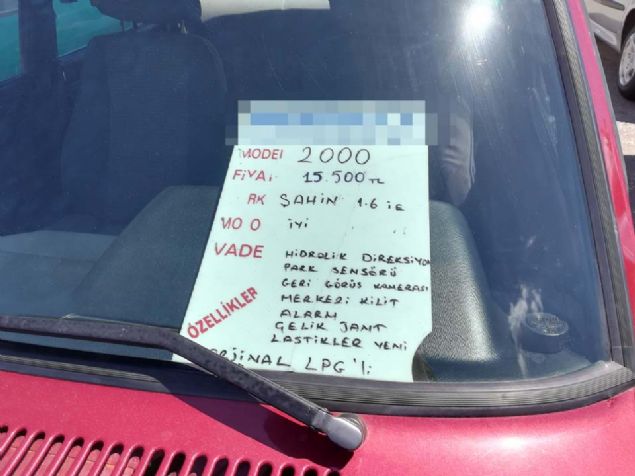 MODEl 2000
FiYAi 15.500 TL
RK ŞAHİN 1.6 ie
MO O İYİ
VADE
HİDROLİK DİREKSİYON
PARK SENSÖRÜ
GERİ GÖRÜŞ KAMERASI
MERKEZİ KİLİT
ALARM
ÇELİK JANT
LASTİKLER YENİ
ÖZELLİKLER
ORJİNAL LPG'Lİ